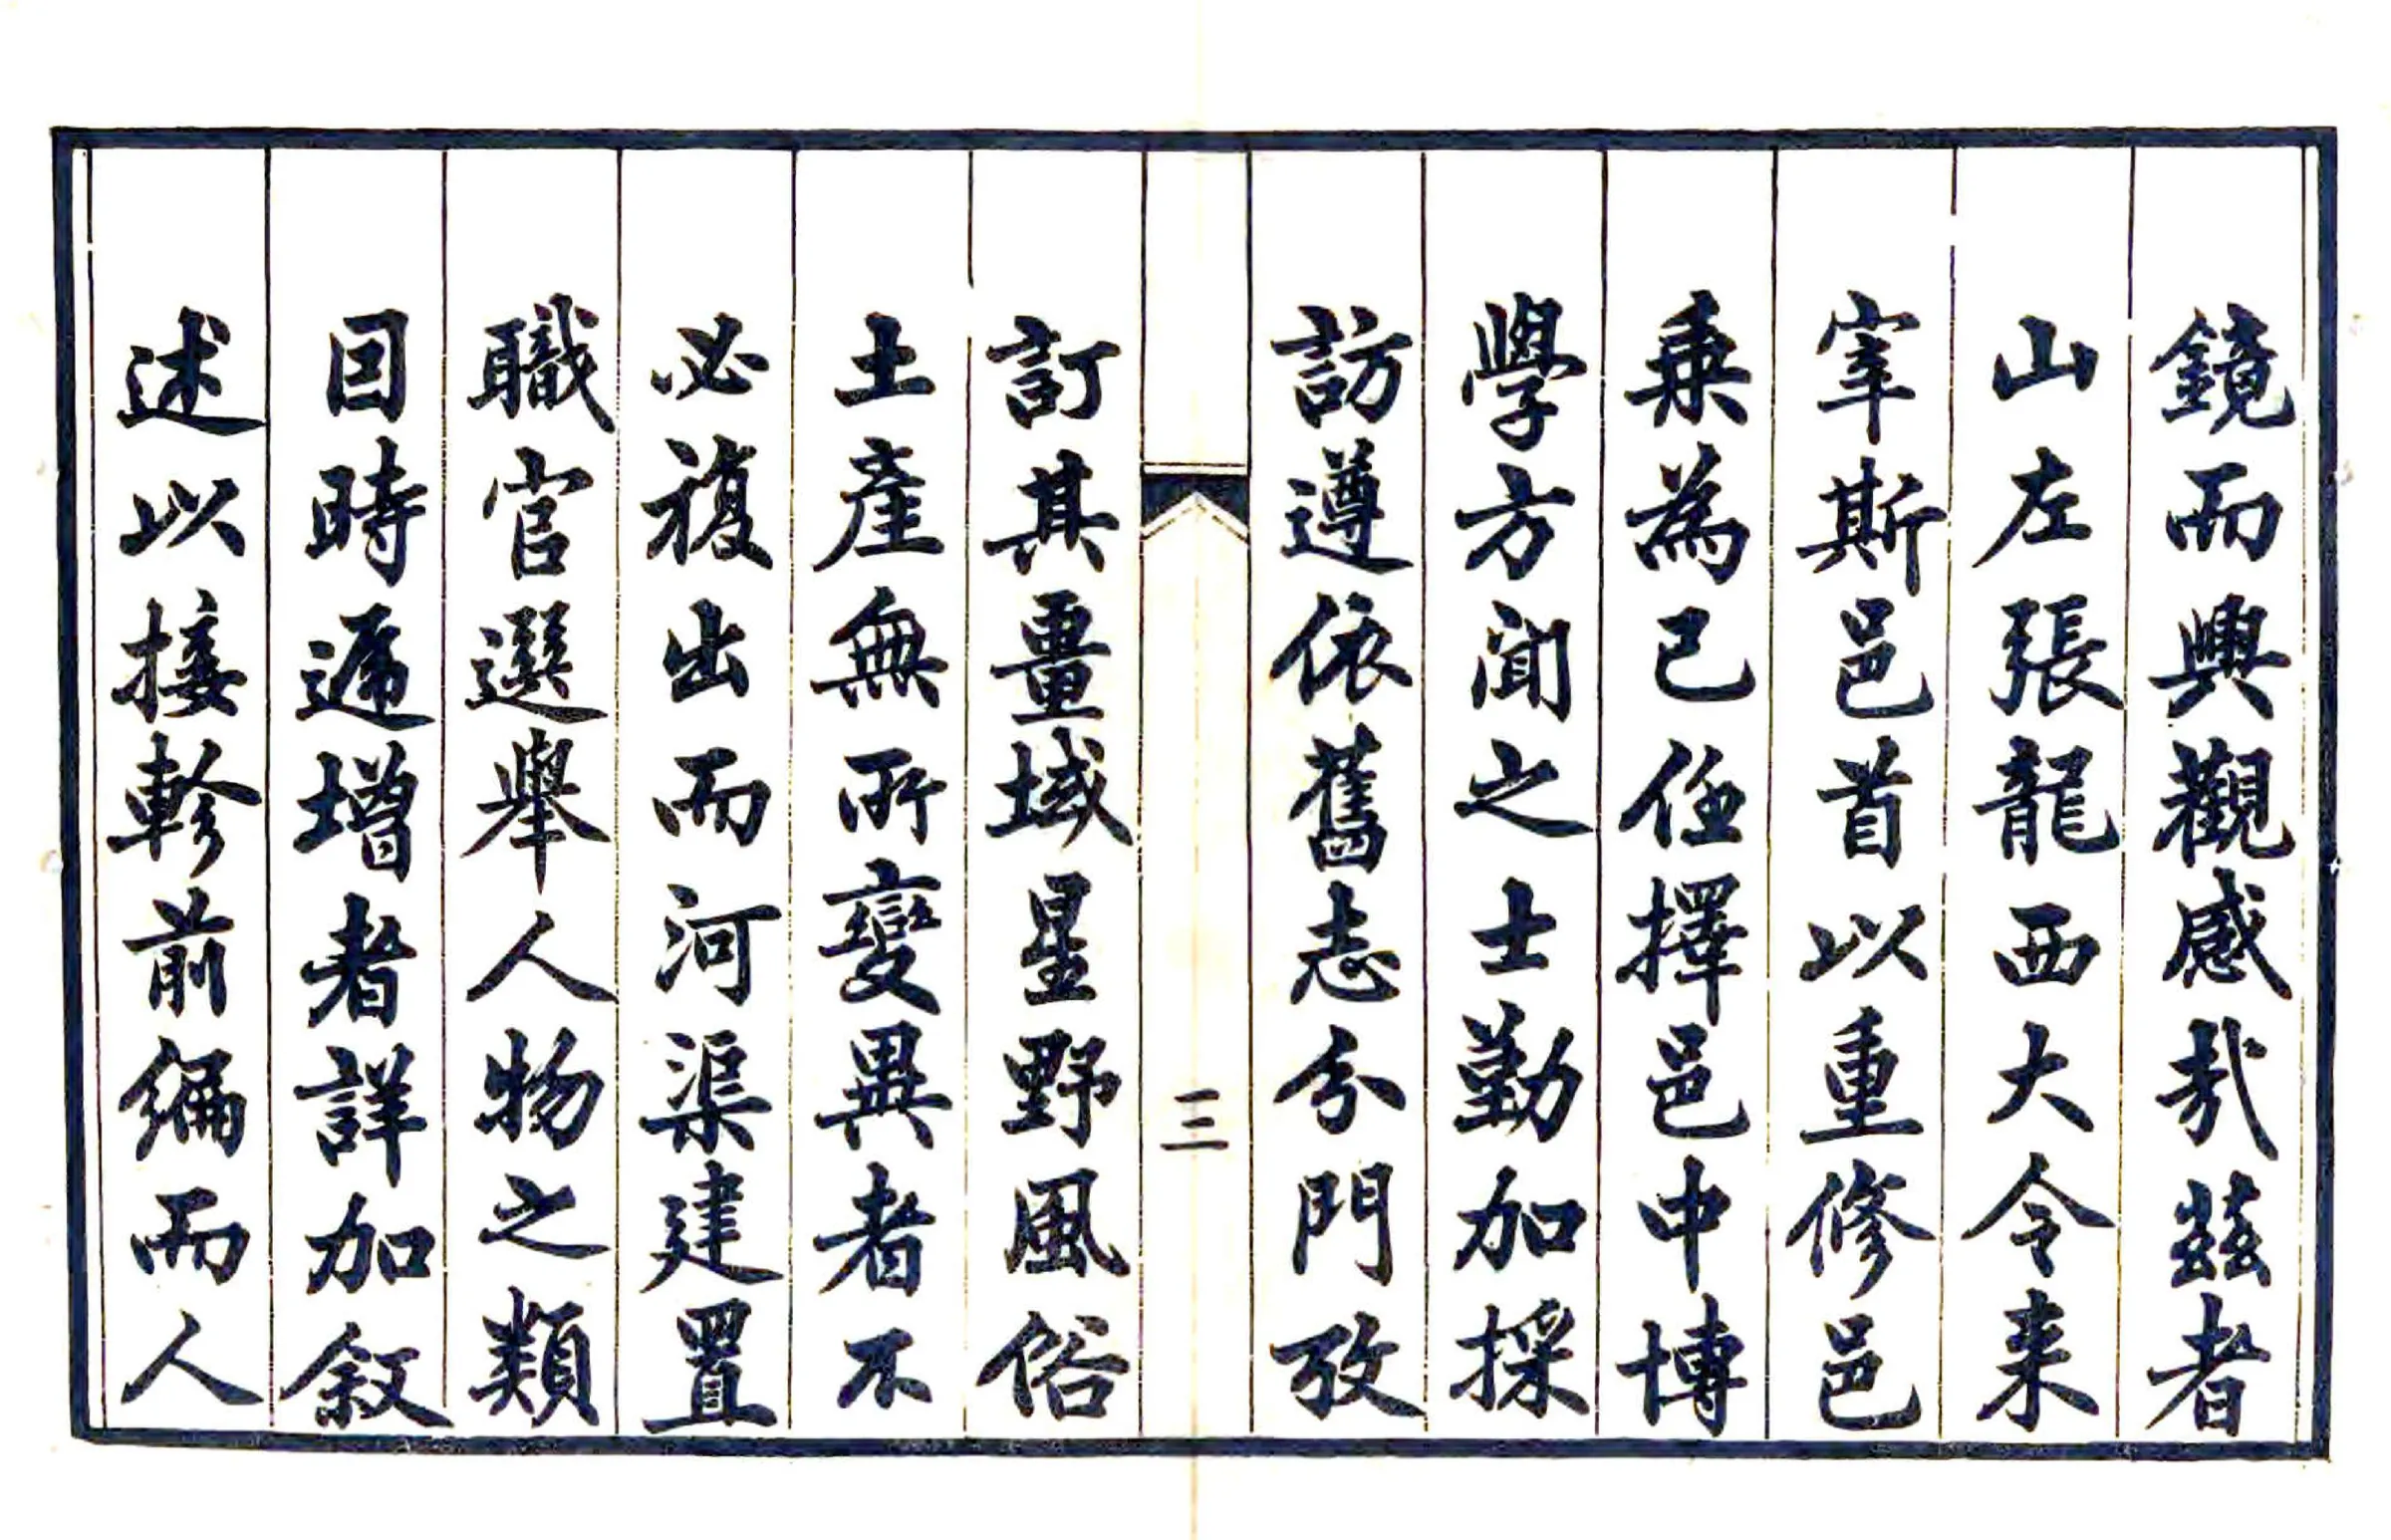 鏡而興觀感哉茲者
山左張龍西大令来
宰斯邑首以重修邑
乗為已任擇邑中博
學方聞之士勤加採
訪遵依舊志分門攷
三
訂其畺域星野風俗
土產無所變異者不
必複出而河渠建置
職官選舉人物之類
因時遞增者詳加叙
述以接軫前編而人